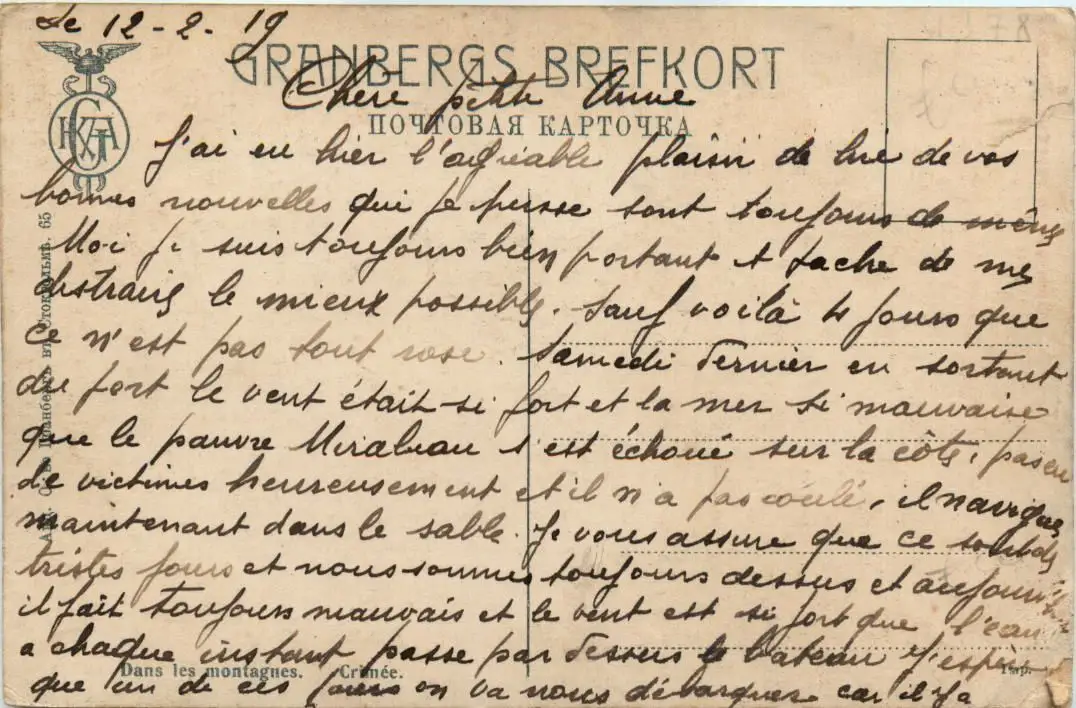 Le 12-2-19
GRANBERGS BREFKORT
Chère petite Anne
ПОЧТОВАЯ КАРТОЧКА
J'ai eu hier l'agréable plaisir de lire de vos
bonnes nouvelles que je pense sont toujours de même
Moi je suis toujours bien portant et tache de me
distraire le mieux possible. Sauf voilà 4 jours que
ce n'est pas tout rose. Samedi dernier en sortant
du port le vent était si fort et la mer si mauvaise
que le pauvre Mirabeau s'est échoué sur la côte, pas eu
de victimes heureusement et il n'a pas coulé, il navigue
maintenant dans le sable. Je vous assure que ce sont des
tristes jours et nous sommes toujours dessus et aujourd'hui
il fait toujours mauvais et le vent est si fort que l'eau
a chaque instant passe par dessus le bateau J'espère
Dans les montagnes. Crimée.
Imp.
que un de ces jours on va nous débarquer car il y a
Стокгольмъ. 65